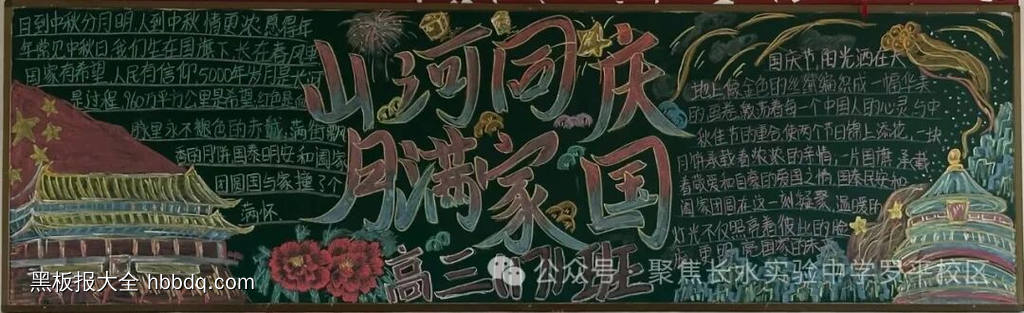 日到中秋分月明 人到中秋情更浓 愿得年
年常见中秋日 我们生在国旗下 长在春风里
国家有希望 人民有信仰 5000年岁月是长河
是过程 960万平方公里是希望 红色是
脉里永不褪色的赤诚 满街飘
香的月饼 国泰民安和阖家
团圆国与家撞了个
满怀
山河同庆
月满家国
高三
班
国庆节,阳光洒在大
地上像金色的丝线编织成一幅华美
的画卷,敲荡着每一个中国人的心灵 与中
秋佳节的重合使两个节日锦上添花,一块
月饼承载着浓浓的亲情,一片国旗承载
着敬爱和自豪的爱国之情 国泰民安和
阖家团圆在这一刻凝聚,温暖的
灯光不仅照亮着彼此的脸
更明亮国家的未
黑板报大全 hbbdq.com
公众号 · 聚焦长水实验中学罗平校区